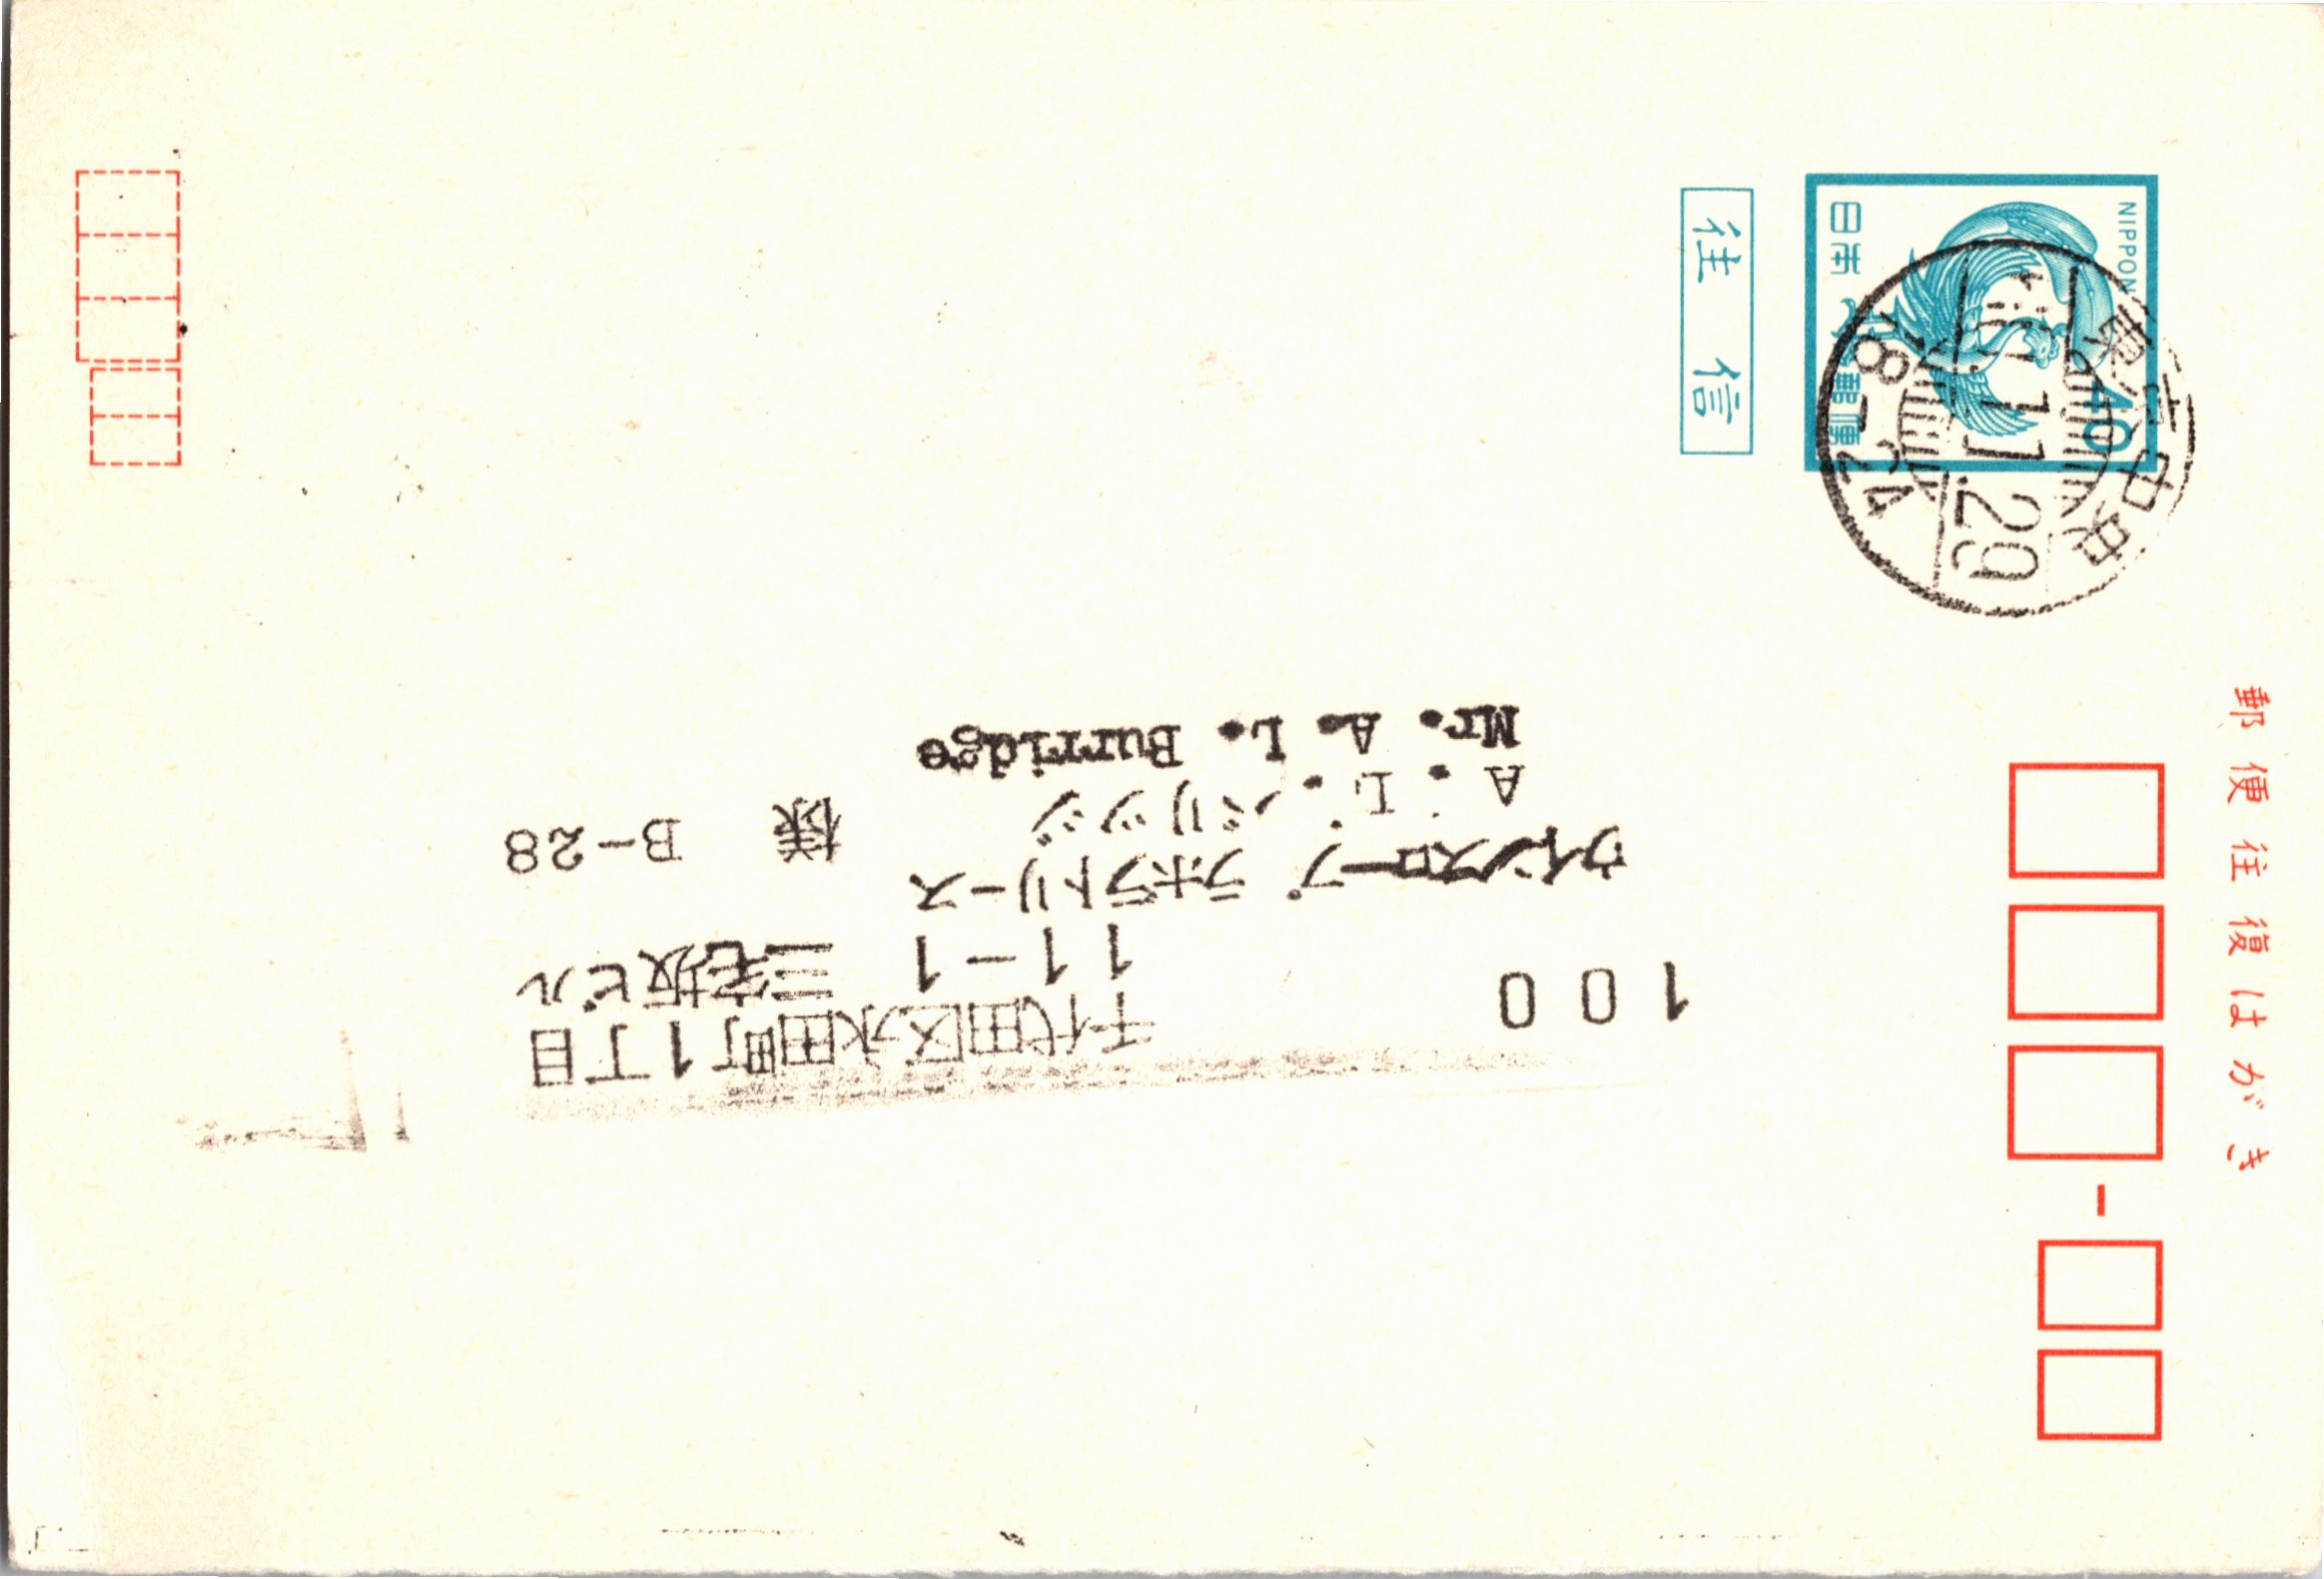 郵便往復はがき
NIPPON
40
日本郵便
往信
東京中央
11.29
18-24
100
千代田区永田町1丁目
11-1 三宅坂ビル
ウインスロープ ラボラトリース
A.L.バリッジ 様 B-28
Mr. A. L. Burridge